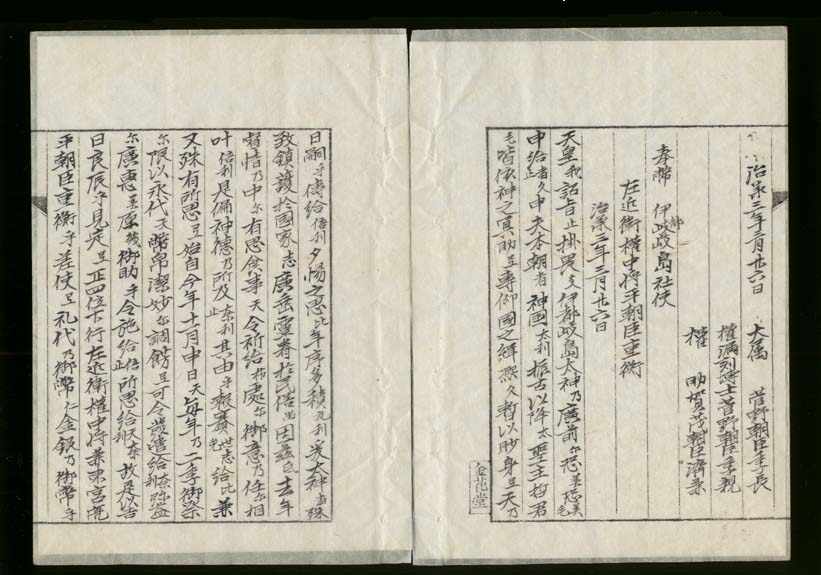 治承三年三月廿六日 大属 菅野朝臣季長
權漏刻博士菅野朝臣季親
權 助賀茂朝臣濟憲
奉幣 伊都岐島社使
左近衛權中将平朝臣重衡
治承三年三月廿六日
天皇我詔旨止掛畏支伊都岐島太神乃廣前尓恐美恐美毛
申給止者久申夫本朝者神国太利振古以降太聖主哲君
毛皆依神之冥助旦専仰國之緝熙久暫以眇身旦天乃
金花堂
日嗣乎傳給倍利夕惕之思比年序多積礼利爰太神者殊
致鎮護於國家志廣垂靈眷於民俗 因茲氏去年
都督乃中尓有思食事天令祈給布處尓御意乃任尓相
叶倍利是偏神德乃所及止奈利其由乎報賽世志毛給比兼
又殊有所思旦始自今年十一月申日天毎年乃二季御祭
尓限以永代天幣帛潔妙尓調餝旦可令發遣給奈利弥益
尓廣恵 厚哉御助乎令施給倍止所思給利故是以吉
日良辰乎見定旦正四位下行左近衛權中将兼東宮亮
平朝臣重衡乎差使旦礼代乃御幣仁金銀乃御幣乎